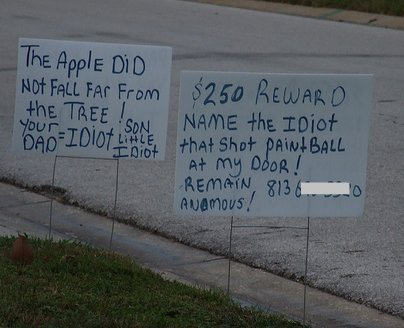 The Apple DiD
NOT FALL FAR From
the TREE !
YOUR DAD = IDIOT SON LITTLE IDIOT
$250 REWARD
NAME the IDiot
that Shot PAiNtBALL
At my DOOR!
REMAIN 813
ANOMOUS!